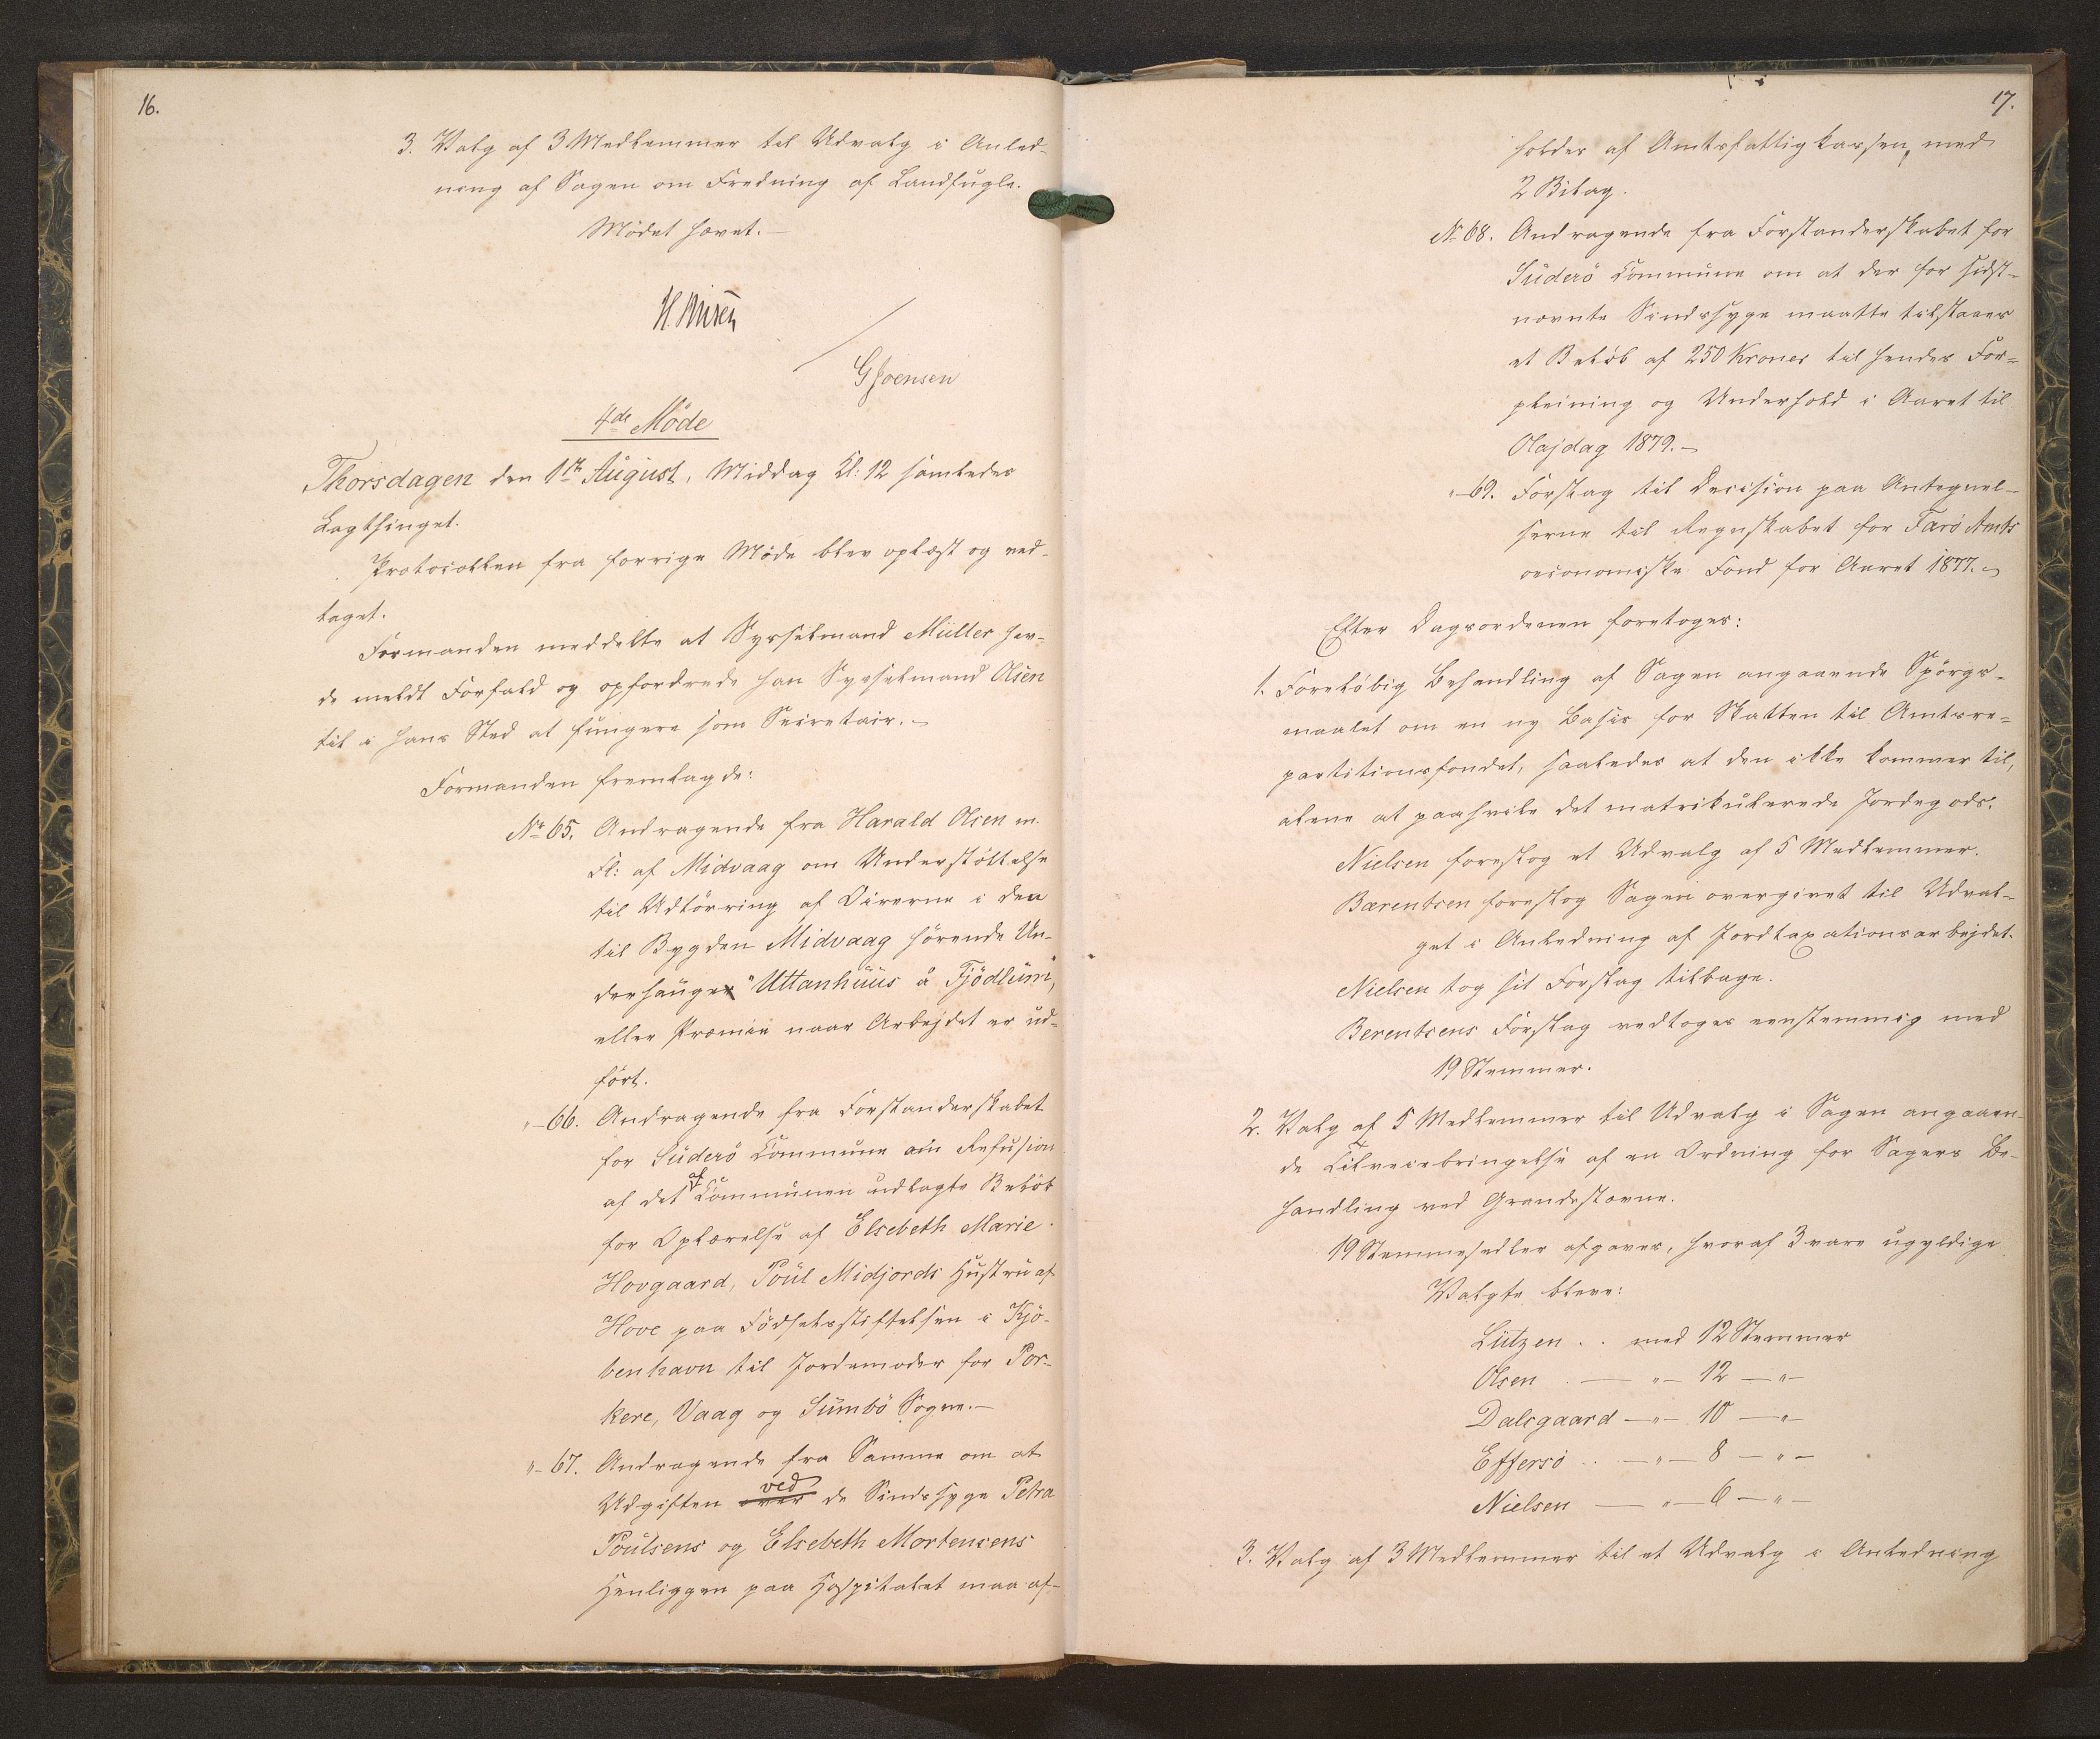 16.
3. Valg af 3 Medlemmer til Udvalg i Anled-
ning af Sagen om Fredning af Landfugle.
Mödet hævet.—
GJoensen
4de Möde
Thorsdagen den 1ste August, Middag Kl: 12 samledes
Lagthinget.
Protocollen fra forrige Möde blev oplæst og ved-
taget.
Formanden meddelte at Sysselmand Müller hav-
de meldt Forfald og opfordrede han Sysselmand Olsen
til i hans Sted at fungere som Secretair.—
Formanden fremlagde:
No 65. Andragende fra Harald Olsen m.
Fl: af Midvaag om Understöttelse
til Udtörring af Dierne i den
til Bygden Midvaag hörende Un-
derhauge "Uttanhuus å Fjödlum",
eller Præmie naar Arbejdet er ud-
fört.
"-66. Andragende fra Forstanderskabet
for Suderö Commune om Refusion
af det af Communen udlagte Belöb
for Oplærelse af Elsebeth Marie
Hovgaard, Poul Midjords Hustru af
Hove paa Födselsstiftelsen i Kjö-
benhavn til Jordemoder for Por-
kere, Vaag og Sumbö Sogne.—
"-67. Andragende fra Samme om at
Udgiften ved de Sindssyge Petra
Poulsens og Elsebeth Mortensens
Henliggen paa Hospitalet maa af-
17.
holdes af Amtsfattigkassen, med
2 Bilag.
No 68. Andragende fra Forstanderskabet for
Suderö Commune om at der for sidst-
nævnte Sindssyge maatte tilstaaes
et Belöb af 250 Kroner til hendes For-
pleining og Underhold i Aaret til
Olajdag 1879.—
"-69. Forslag til Decision paa Antegnel-
serne til Regnskabet for Færö Amts
oeconomiske Fond for Aaret 1877.—
Efter Dagsordenen foretoges:
1. Forelöbig Behandling af Sagen angaaende Spörgs-
maalet om en ny Basis for Skatten til Amtsre-
partitionsfondet, saaledes at den ikke kommer til,
alene at paahvile det matrikulerede Jordegods.
Nielsen foreslog et Udvalg af 5 Medlemmer.
Bærentsen foreslog Sagen overgivet til Udval-
get i Anledning af Jordtaxationsarbejdet.
Nielsen tog sit Forslag tilbage.
Berentsens Forslag vedtoges eenstemmig med
19 Stemmer.
2. Valg af 5 Medlemmer til Udvalg i Sagen angaaen-
de Tilveiebringelse af en Ordning for Sagers Be-
handling ved Grandestævne.
19 Stemmesedler afgaves, hvoraf 3 vare ugyldige
Valgte bleve:
Lützen . . med 12 Stemmer
Olsen . — "— 12 —"—
Dalsgaard —"— 10 —"—
Effersö . . —"— 8 —"—
Nielsen — "— 6 —"—
3. Valg af 3 Medlemmer til et Udvalg i Anledning